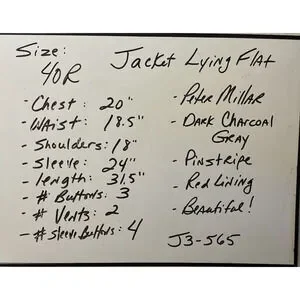 Size: Jacket Lying Flat
40R
- Chest: 20"
- Waist: 18.5"
- Shoulders: 18"
- Sleeve: 24"
- length: 31.5"
- # Buttons: 3
- # Vents: 2
- # Sleeve Buttons: 4
- Peter Millar
- Dark Charcoal
Gray
- Pinstripe
- Red Lining
- Beautiful!
J3-565